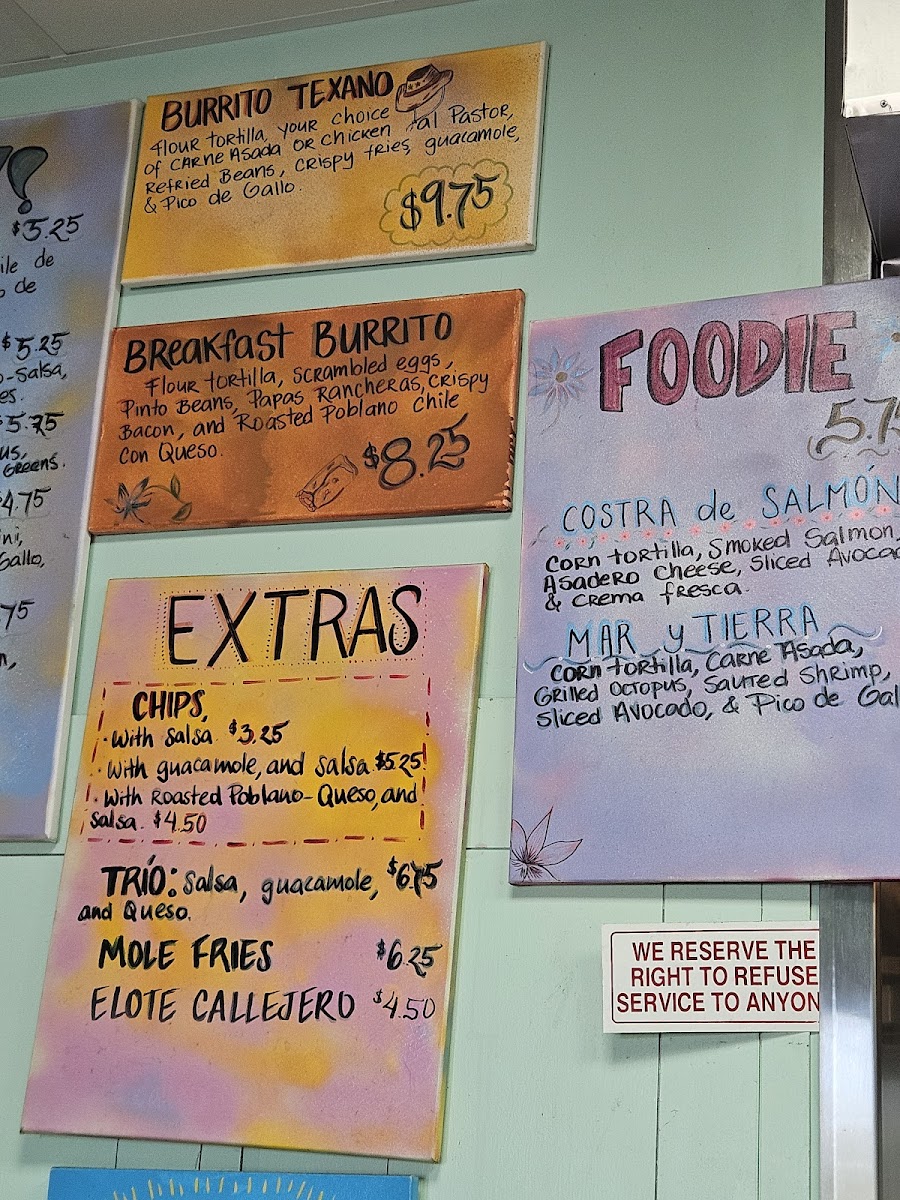 $5.25
ile de
o de
$5.25
o-Salsa,
es.
$5.75
us,
Greens.
$4.75
ini,
Gallo,
.75
n,
BURRITO TEXANO
Flour tortilla, your choice
of Carne Asada or Chicken al Pastor,
Refried Beans, crispy fries, guacamole,
& Pico de Gallo.
$9.75
Breakfast BURRITO
Flour tortilla, Scrambled eggs,
Pinto Beans, Papas Rancheras, crispy
Bacon, and Roasted Poblano Chile
con Queso.
$8.25
EXTRAS
CHIPS,
· with salsa $3.25
· with guacamole, and salsa $5.25
· with Roasted Poblano-Queso, and
salsa. $4.50
TRÍO: Salsa, guacamole, $6.75
and Queso.
MOLE FRIES $6.25
ELOTE CALLEJERO $4.50
FOODIE
5.75
COSTRA de SALMÓN
Corn tortilla, Smoked Salmon,
Asadero Cheese, Sliced Avocad
& Crema fresca.
MAR y TIERRA
Corn tortilla, Carne Asada,
Grilled Octopus, Sauted Shrimp,
Sliced Avocado, & Pico de Gal
WE RESERVE THE
RIGHT TO REFUSE
SERVICE TO ANYON